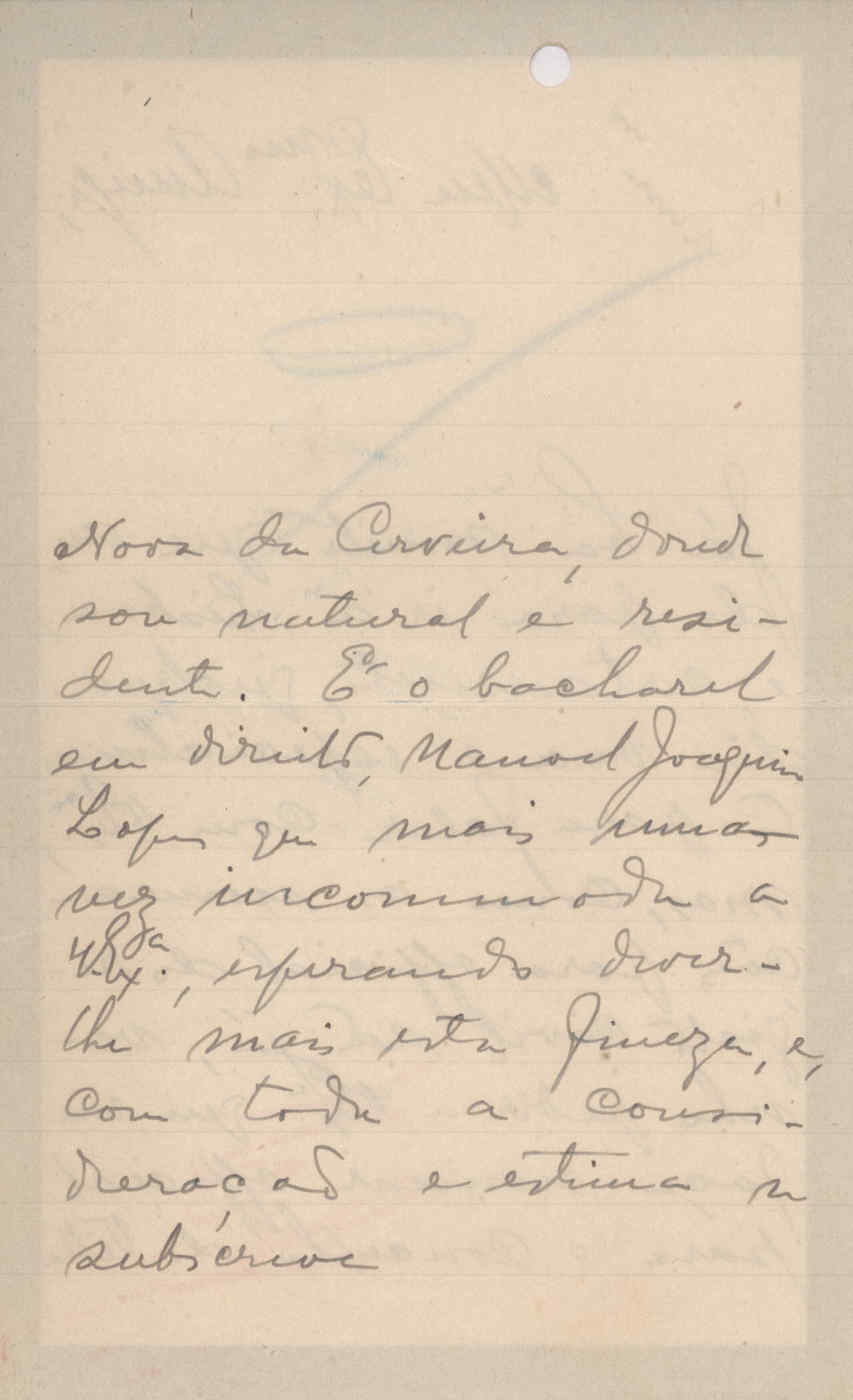 Nova da Cerveira, donde
sou natural e resi-
dente. É o bacharel
em direito, Manoel Joaquim
Lopes que mais uma
vez incommoda a
V. Ex.ª, esperando dever-
lhe mais esta fineza, e,
com toda a consi-
deração e estima se
subscreve